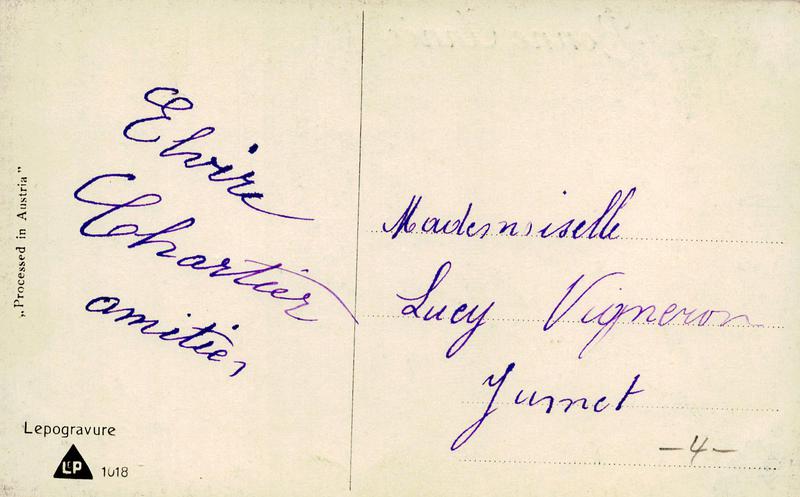 Elvire
Chartier
amitiés
Mademoiselle
Lucy Vigneron
Jumet
-4-
„Processed in Austria”
Lepogravure
LEP 1018